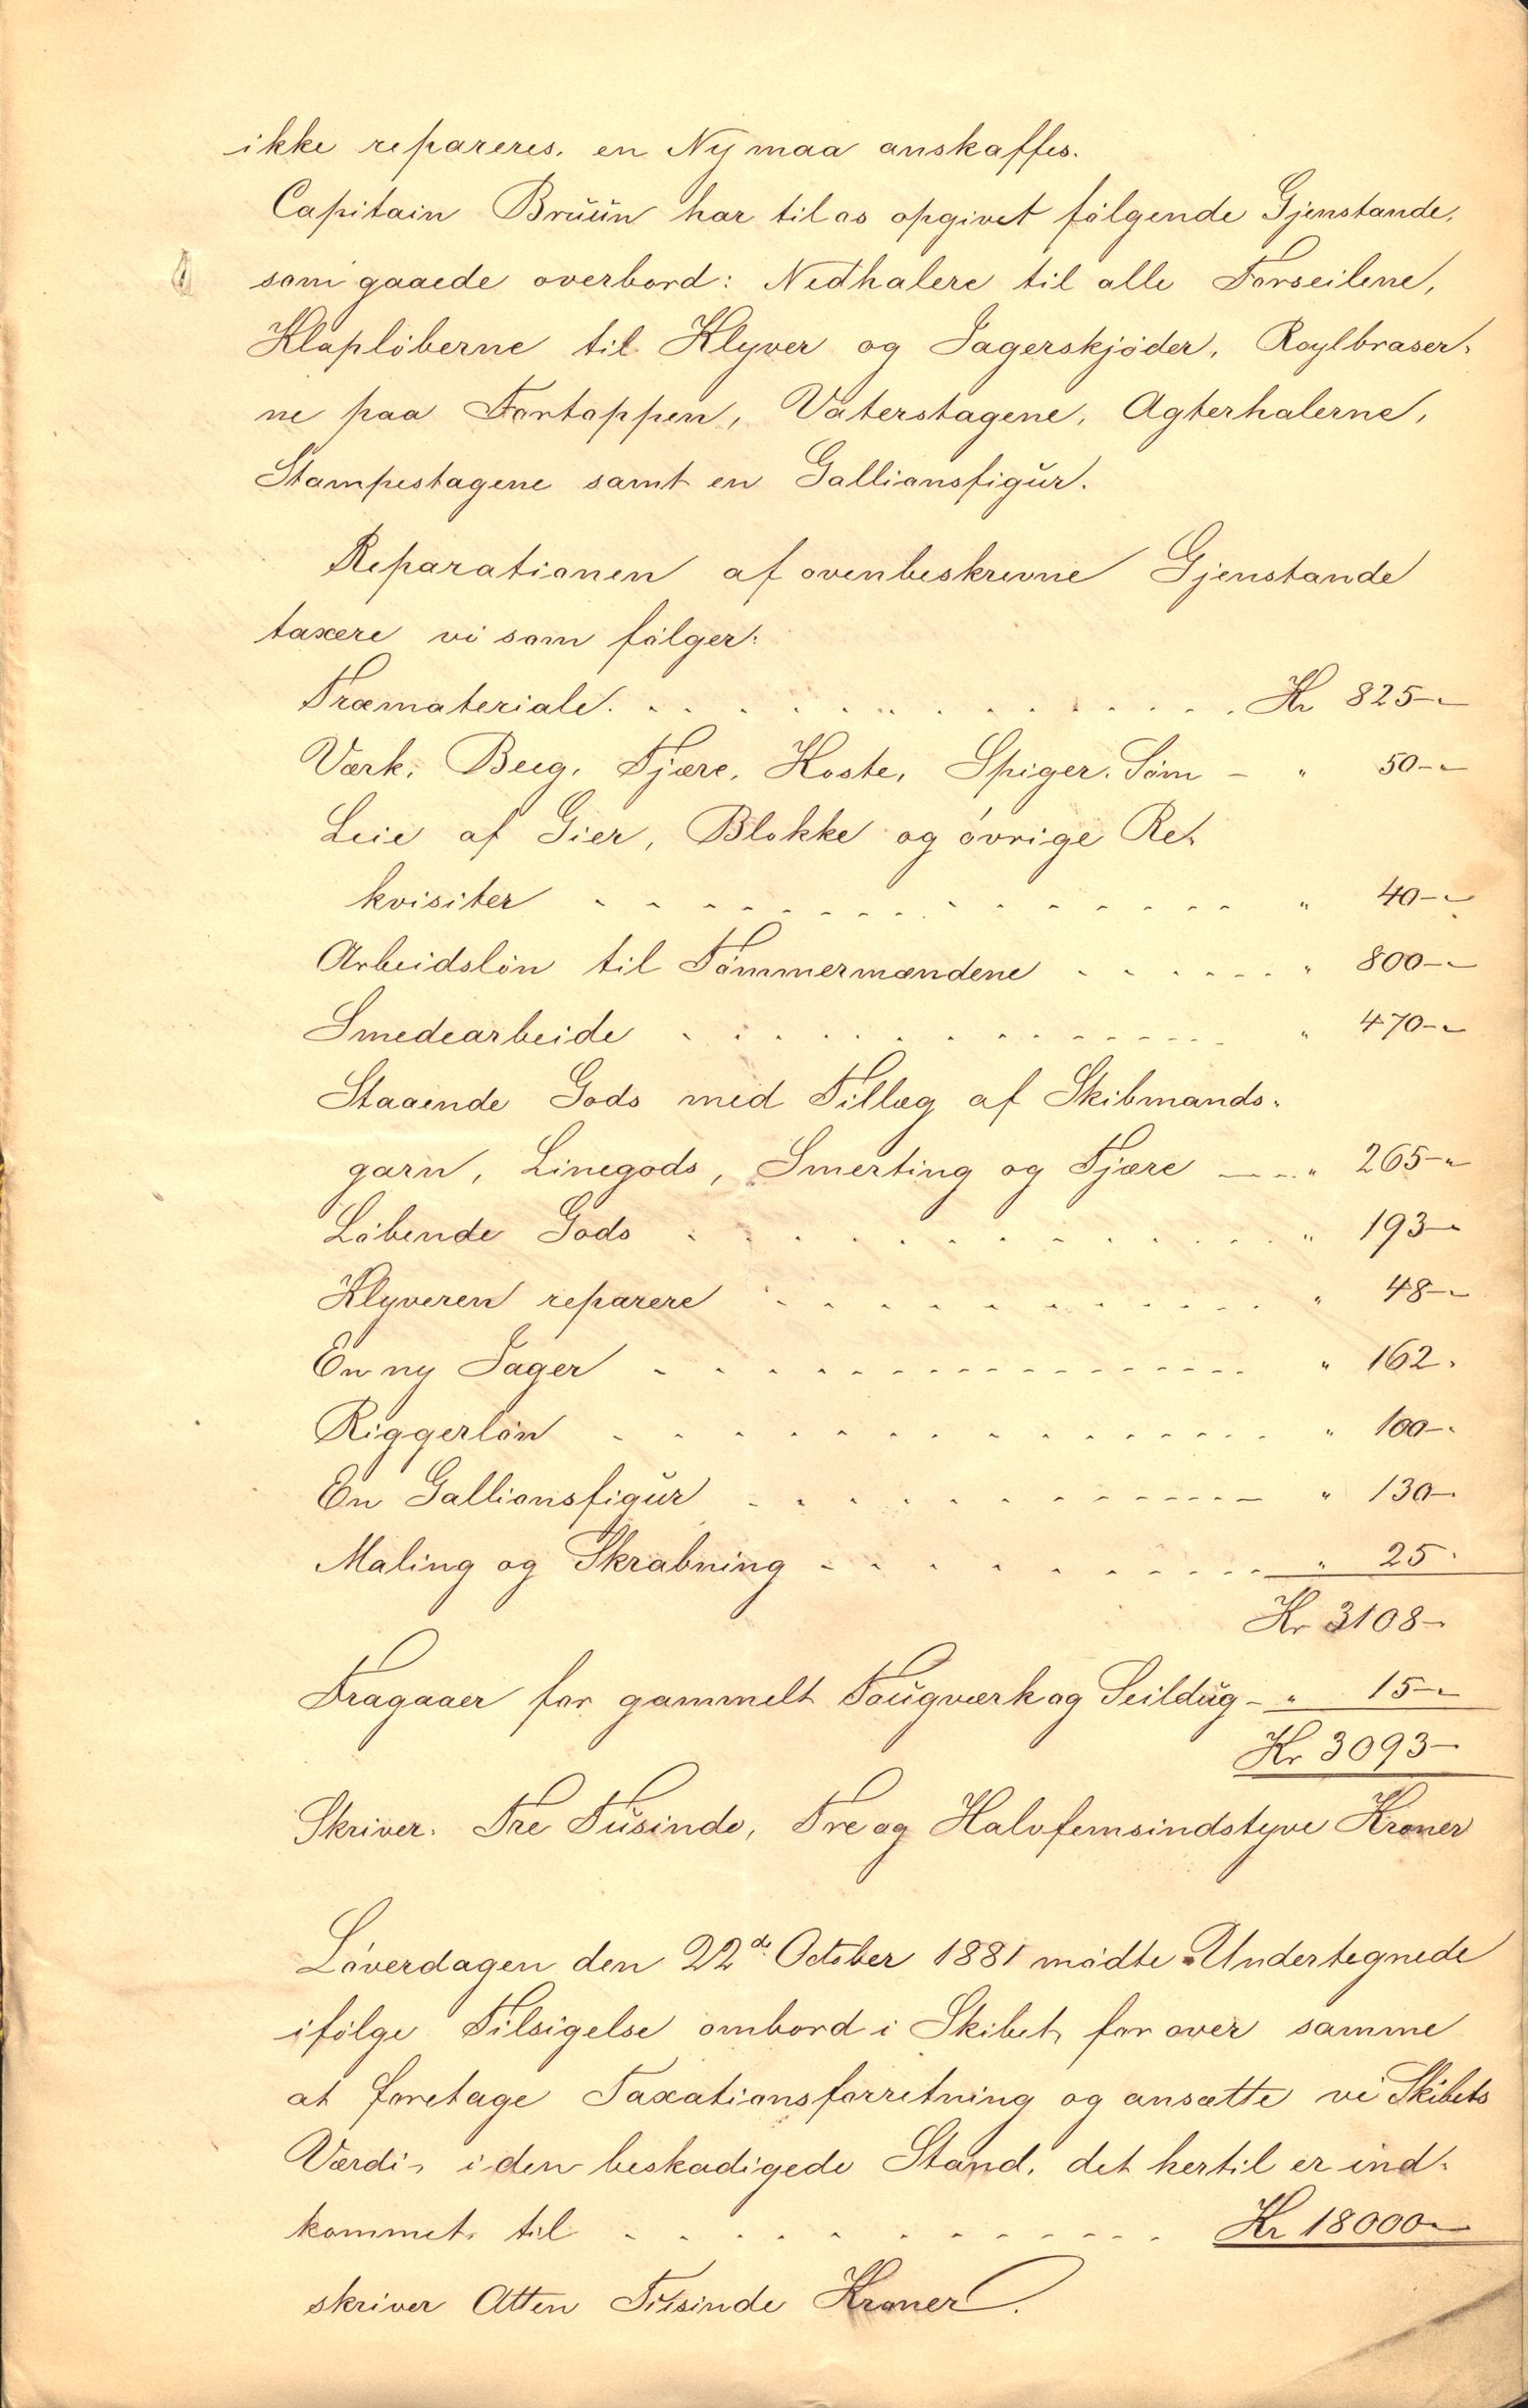 ikke repareres. en Ny maa anskaffes.
Capitain Bruun har til os opgivet følgende Gjenstande,
som gaaede overbord: Nedhalere til alle Forseilene,
Klapløberne til Klyver og Jagerskjøder, Roylbraser-
ne paa Fortoppen, Vaterstagene, Agterhalerne,
Stampestagene samt en Gallionsfigur.
Reparationen af ovenbeskrevne Gjenstande
taxere vi som følger:
Træmateriale . . . . . . . . . . . . Kr 825-"
Værk, Beeg, Tjære, Koste, Spiger, Søm - " 50-"
Leie af Gier, Blokke og øvrige Re-
kvisiter - - - - - - - - - - - - " 40-"
Arbeidsløn til Tømmermændene - - - - - - " 800-"
Smedearbeide - - - - - - - - - - - " 470-"
Staaende Gods med Tillæg af Skibmands-
garn, Linegods, Smerting og Tjære - - - " 265-"
Løbende Gods . . . . . . . . . . . . " 193-"
Klyveren reparere - - - - - - - - - - " 48-"
En ny Jager - - - - - - - - - - - - " 162.
Riggerløn - - - - - - - - - - - - - " 100-"
En Gallionsfigur - - - - - - - - - - - " 130-
Maling og Skrabning - - - - - - - - - " 25"
Kr 3108-
Fragaaer for gammelt Tougværk og Seildug - " 15-"
Kr 3093-
Skriver. Tre Tusinde, Tre og Halvfemsindstyve Kroner
Løverdagen den 22de October 1881 mødte Undertegnede
ifølge Tilsigelse ombord i Skibet, for over samme
at foretage Taxationsforretning og ansætte vi Skibets
Værdi, i den beskadigede Stand, det hertil er ind-
kommet, til - - - - - - - - - - - Kr 18000-
skriver Atten Tusinde Kroner.